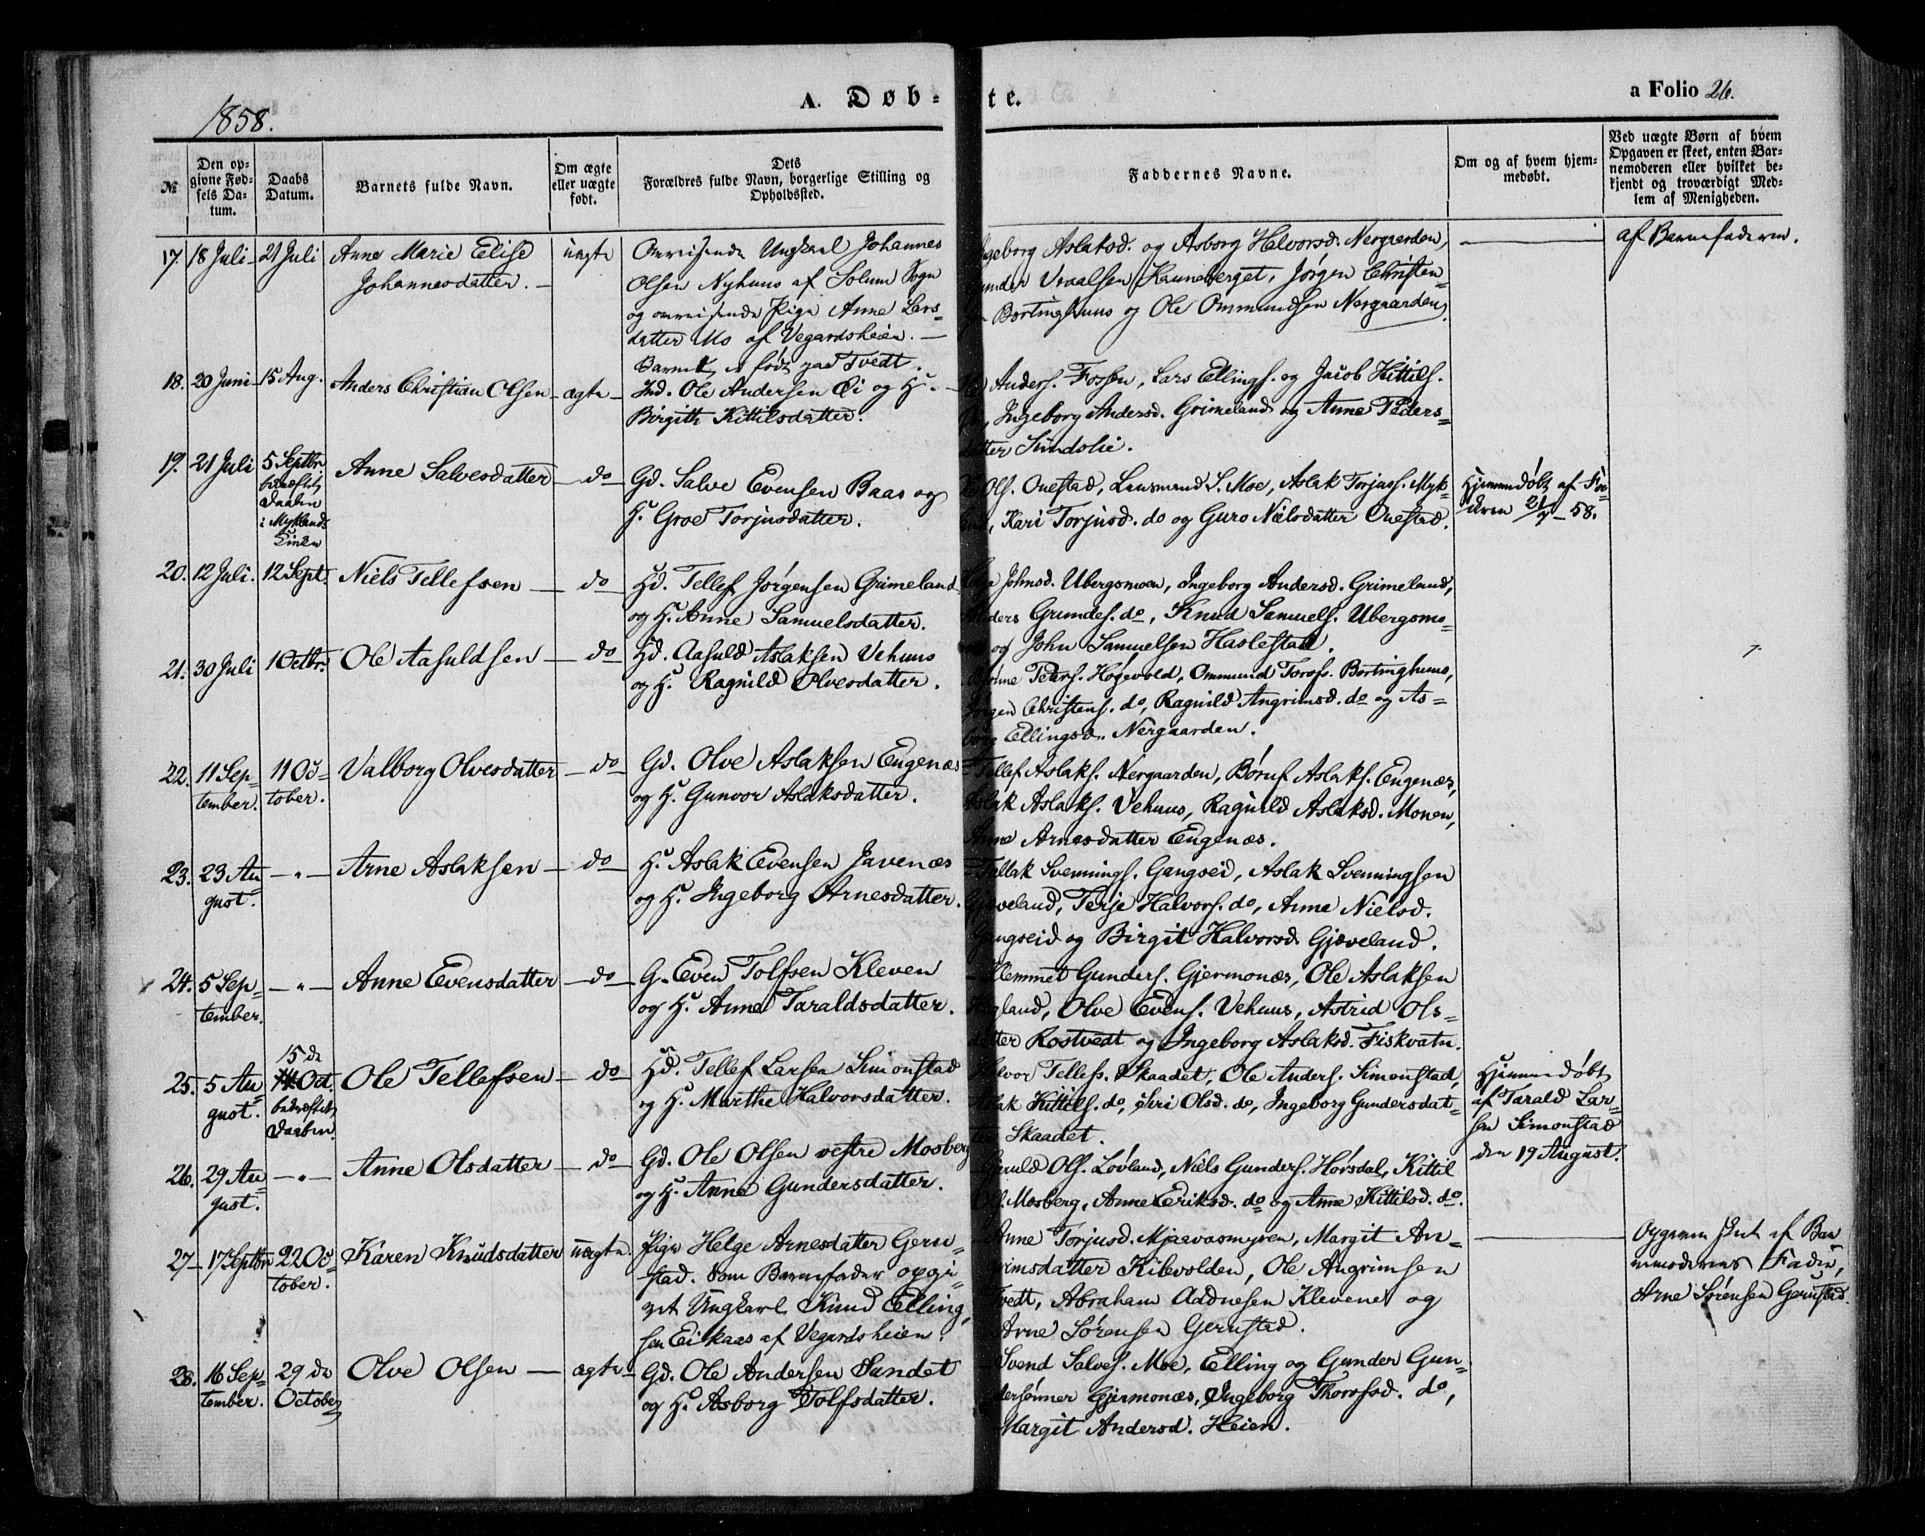 1858.
A. Døb-
te.
a Folio 26.
№
Den op-
givne Fød-
sels Da-
tum.
Daabs
Datum.
Barnets fulde Navn.
Om ægte
eller uægte
født.
Dets
Forældres fulde Navn, borgerlige Stilling og
Opholdssted.
Faddernes Navne.
Om og af hvem hjem-
medøbt.
Ved uægte Børn af hvem
Opgaven er skeet, enten Bar-
nemoderen eller hvilket be-
kjendt og troværdigt Med-
lem af Menigheden.
17. 18 Juli 21 Juli Anne Marie Elise uægte Omreisende Ungkarl Johannes
Johannesdatter. Olsen Nyhuus af Solum Sogn
og omreisende Pige Anne Lars-
datter Mo af Vegardsheien.
Barnet er født paa Tvedt.
Ingeborg Aslaksd. og Asborg Halvorsd. Nergaarden,
Gunder Vraalsen Hauneberget, Jørgen Christen-
Bortinghuus og Ole Ommundsen Nergaarden.
af Barnefaderen.
18. 20 Juni 15 Aug. Anders Christian Olsen ægte Ind. Ole Andersen Øi og H.
Birgith Kittilsdatter.
Anders. Fossen, Lars Ellings. og Jacob Kittils.
Ingeborg Andersd. Grimeland og Anne Peders-
datter Sundslie.
19. 21 Juli 5 Septbr. Anne Salvesdatter do Gd. Salve Evensen Baas og
bekræftet
Daaben
i Myklands
Kirken
H. Groe Torjusdatter.
Ols. Onestad, Lensmand S. Moe, Aslak Torjuss. Myk-
Kari Torjusd. do og Guro Nielsdatter Onestad.
Hjemmedøbt af Fa-
deren 21/7-58.
20. 12 Juli. 12 Sept. Niels Tellefsen do Hd. Tellef Jørgensen Grimeland
og H. Anne Samuelsdatter.
Johnsd. Ubergsmoen, Ingeborg Andersd. Grimeland,
Anders Grundes. do, Knud Samuels. Ubergsmo-
og John Samuelsen Haslestad.
21. 30 Juli 1 Octbr. Ole Aasuldsen do Hd. Aasuld Aslaksen Vehuus
og H. Ragnild Olvesdatter.
Peters. Høgevold, Ommund Torofs. Bortinghuus,
Jørgen Christens. do, Ragnild Angrimsd. do og As-
borg Ellingsd. Nergaarden.
22. 11 Sep- 11 Oc- Valborg Olvesdatter do Gd. Olve Aslaksen Engenæs
tember. tober. og H. Gunvor Aslaksdatter.
Tellef Aslaks. Nergaarden, Børuf Aslaks. Engenæs,
Aslak Aslaks. Vehuus, Ragnild Aslaksd. Monen,
Anne Arnesdatter Engenæs.
23. 23 Au- -"- Arne Aslaksen do H. Aslak Evensen Javenæs
gust. og H. Ingeborg Arnesdatter.
Tallak Svennings. Gangseid, Aslak Svenningsen
Gjøveland, Terje Halvors. do, Anne Nielsd.
Gangseid og Birgit Halvorsd. Gjøveland.
24. 5 Sep- -"- Anne Evensdatter do G. Even Tolfsen Kleven
tember. og H. Anne Taraldsdatter.
Klemmet Gunders. Gjermonæs, Ole Aslaksen
Høgland, Olve Evens. Vehuus, Astrid Ols-
datter Rostvedt og Ingeborg Aslaksd. Fiskvatn.
25. 5 Au- 15 de Oct. Ole Tellefsen do Hd. Tellef Larsen Simonstad
gust. bekræftet
Daaben.
og H. Marthe Halvorsdatter.
Halvor Tellefs. Skaadet, Ole Anders. Simonstad,
Aslak Kittils. do, Siri Olsd. do, Ingeborg Gundersdat-
ter Skaadet.
Hjemmedøbt
af Tarald Lar-
sen Simonstad
den 19 August.
26. 29 Au- -"- Anne Olsdatter do Gd. Ole Olsen vestre Mosberg
gust. og H. Anne Gundersdatter.
Ols. Løvland, Niels Gunders. Hørsdal, Kittil
Ols. Mosberg, Anne Eriksd. do og Anne Kittilsd. do.
27 17 Septbr 22 Oc- Karen Knudsdatter uægte. Pige Helge Arnesdatter Geru-
tober. stad. Som Barnefader opgi-
vet Ungkarl Knud Elling-
sen Eilkaas af Vegardsheien.
Anne Torjusd. Mjaavasmyren, Margit An-
grimsdatter Kilevolden, Ole Angrimsen
Tvedt, Abraham Addnesen Klevene og
Arne Sørensen Gerustad.
Opgiven skeet af Bar-
nemoderens Fader,
Arne Sørensen Gerustad.
28. 16 Sep- 29 de Olve Olsen ægte Gd. Ole Andersen Sandet
tember. October og H. Asborg Tolfsdatter.
Svend Salves. Moe, Elling og Gunder Gun-
dersønner Gjermonæs, Ingeborg Thorofsd. do,
Margit Andersd. Heien.